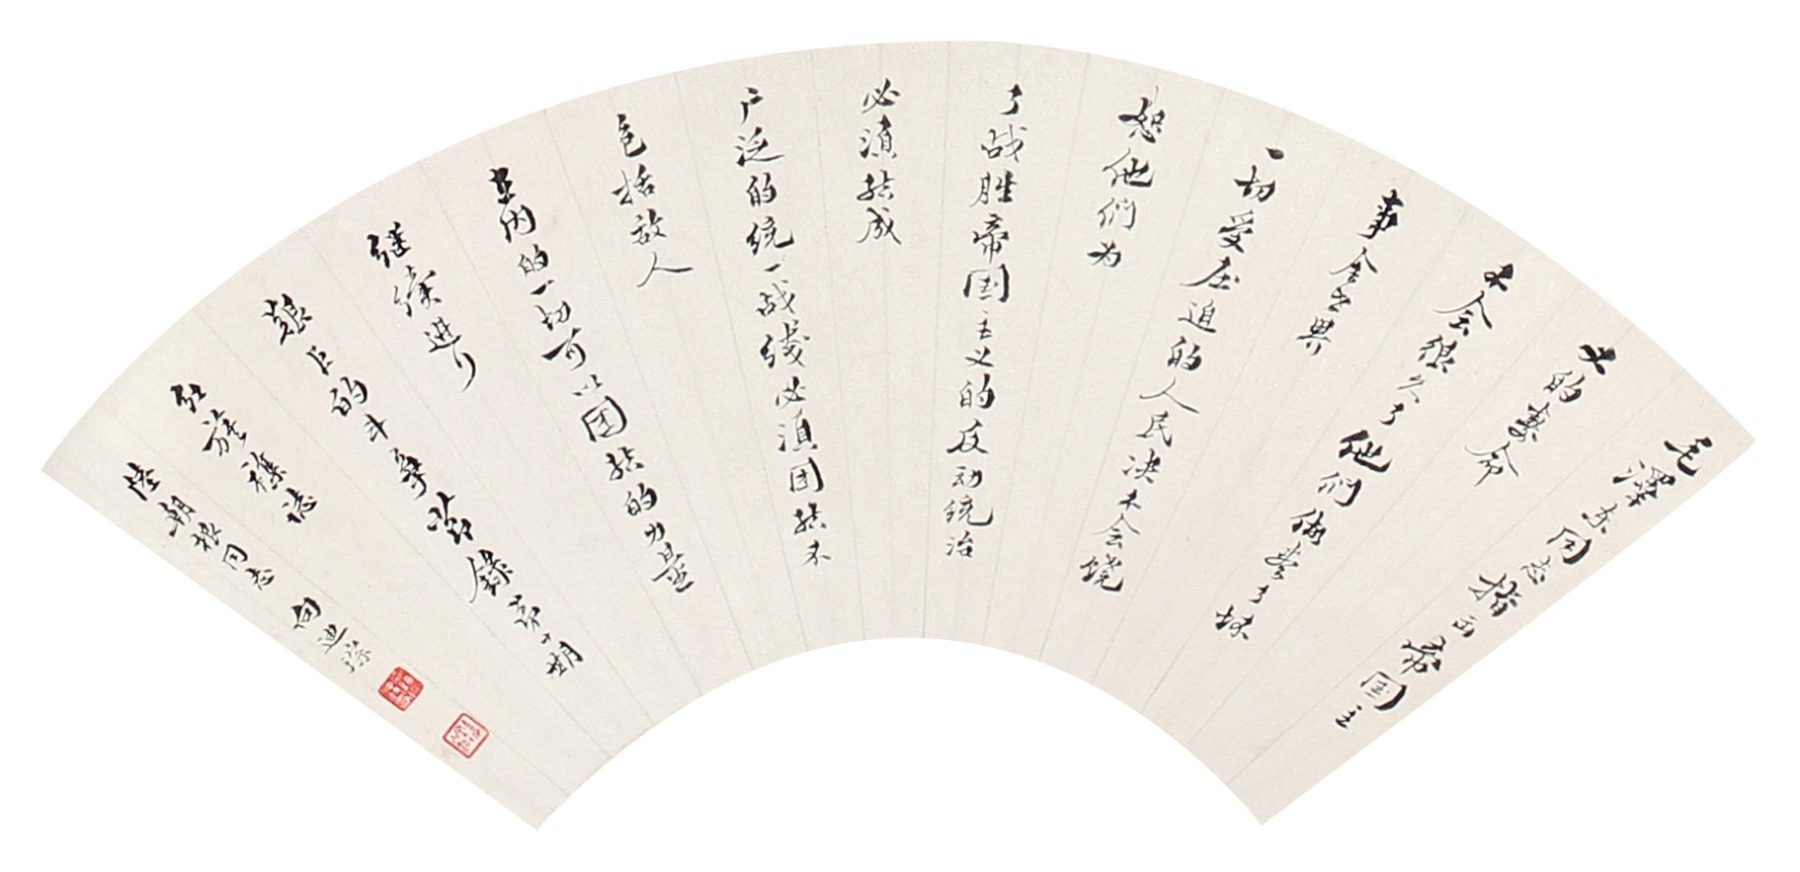 毛澤东同志指出帝国主
义的寿命
不会很久了他们做尽了坏
事全世界
一切受压迫的人民决不会饶
恕他们为
了战胜帝国主义的反动统治
必须结成
广泛的统一战线必须团结不
包括敌人
在内的一切可以团结的力量
继续进行
艰巨的斗争节錄第十期
红旗雜誌
陸朝根同志 向迪琮